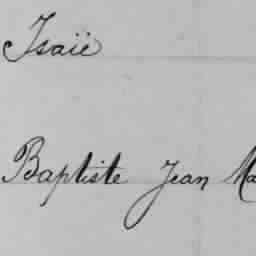 Isaïe
Baptiste Jean Ma